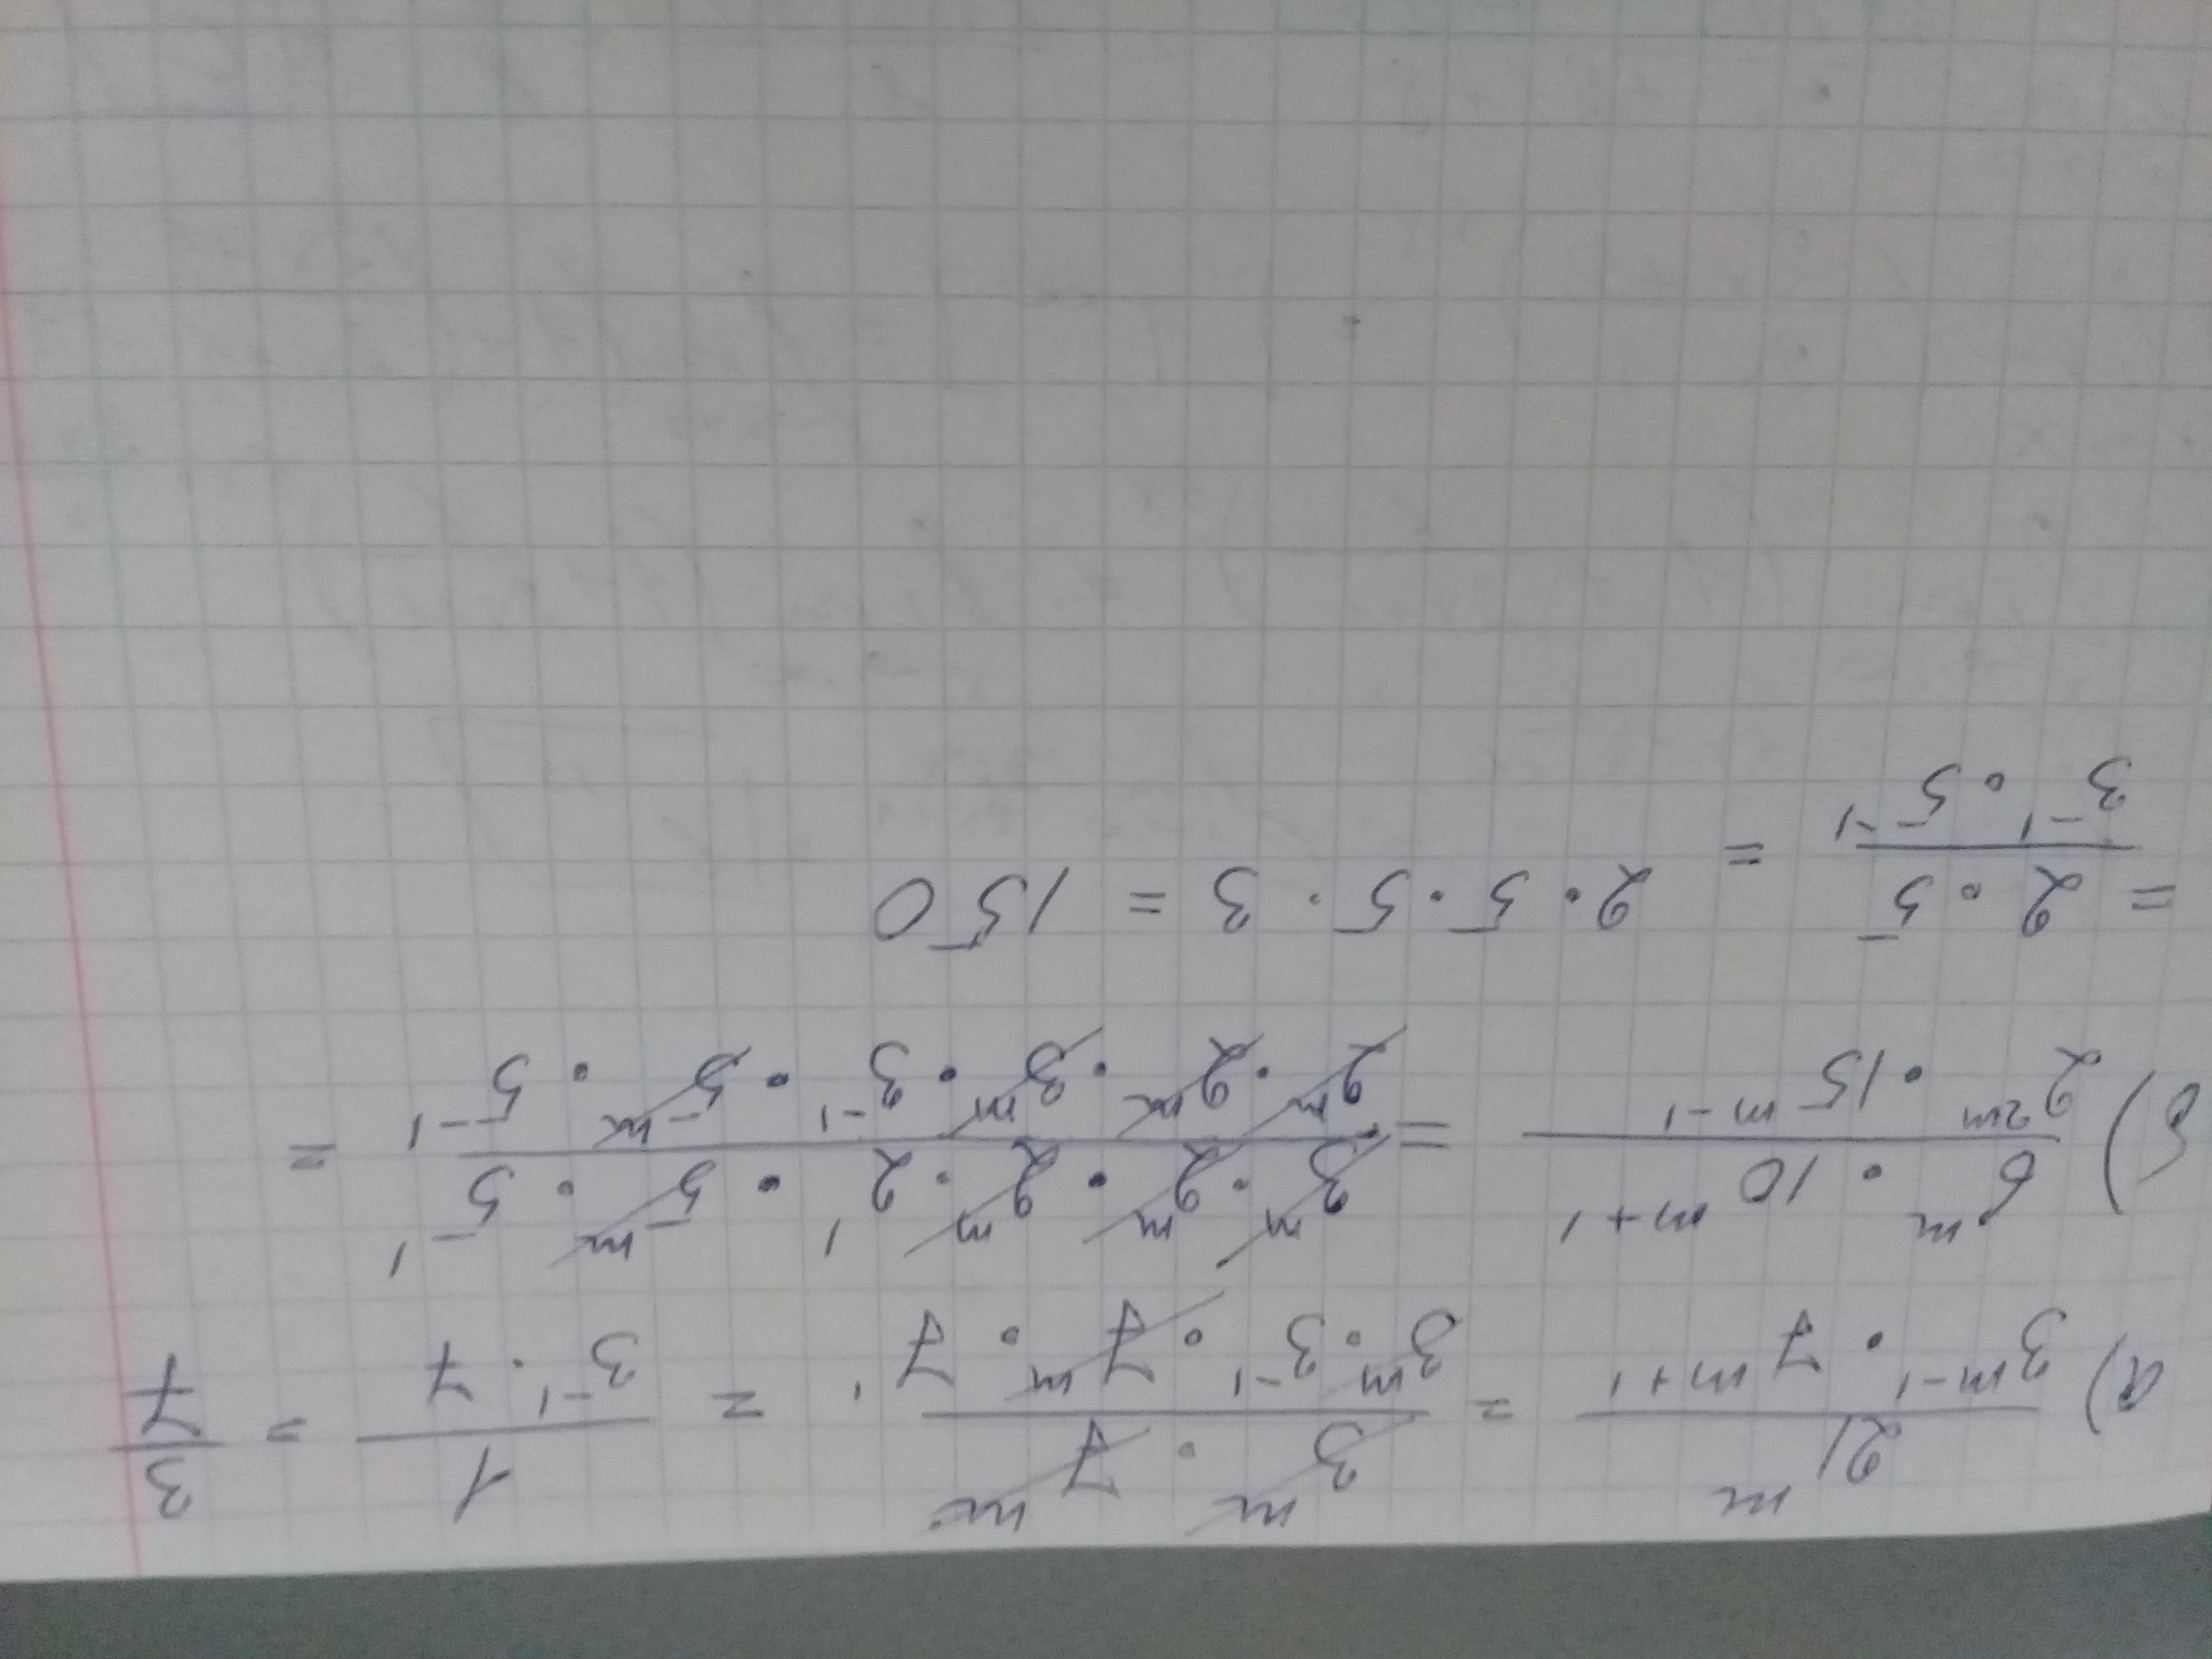 а) 21^m / (3^(m-1) · 7^(m+1)) = (3^m · 7^m) / (3^m · 3^-1 · 7^m · 7^1) = 1 / (3^-1 · 7) = 3/7
б) (6^m · 10^(m+1)) / (2^(2m) · 15^(m-1)) = (3^m · 2^m · 2^m · 2^1 · 5^m · 5^1) / (2^m · 2^m · 3^m · 3^-1 · 5^m · 5^-1) =
= (2 · 5) / (3^-1 · 5^-1) = 2 · 5 · 5 · 3 = 150